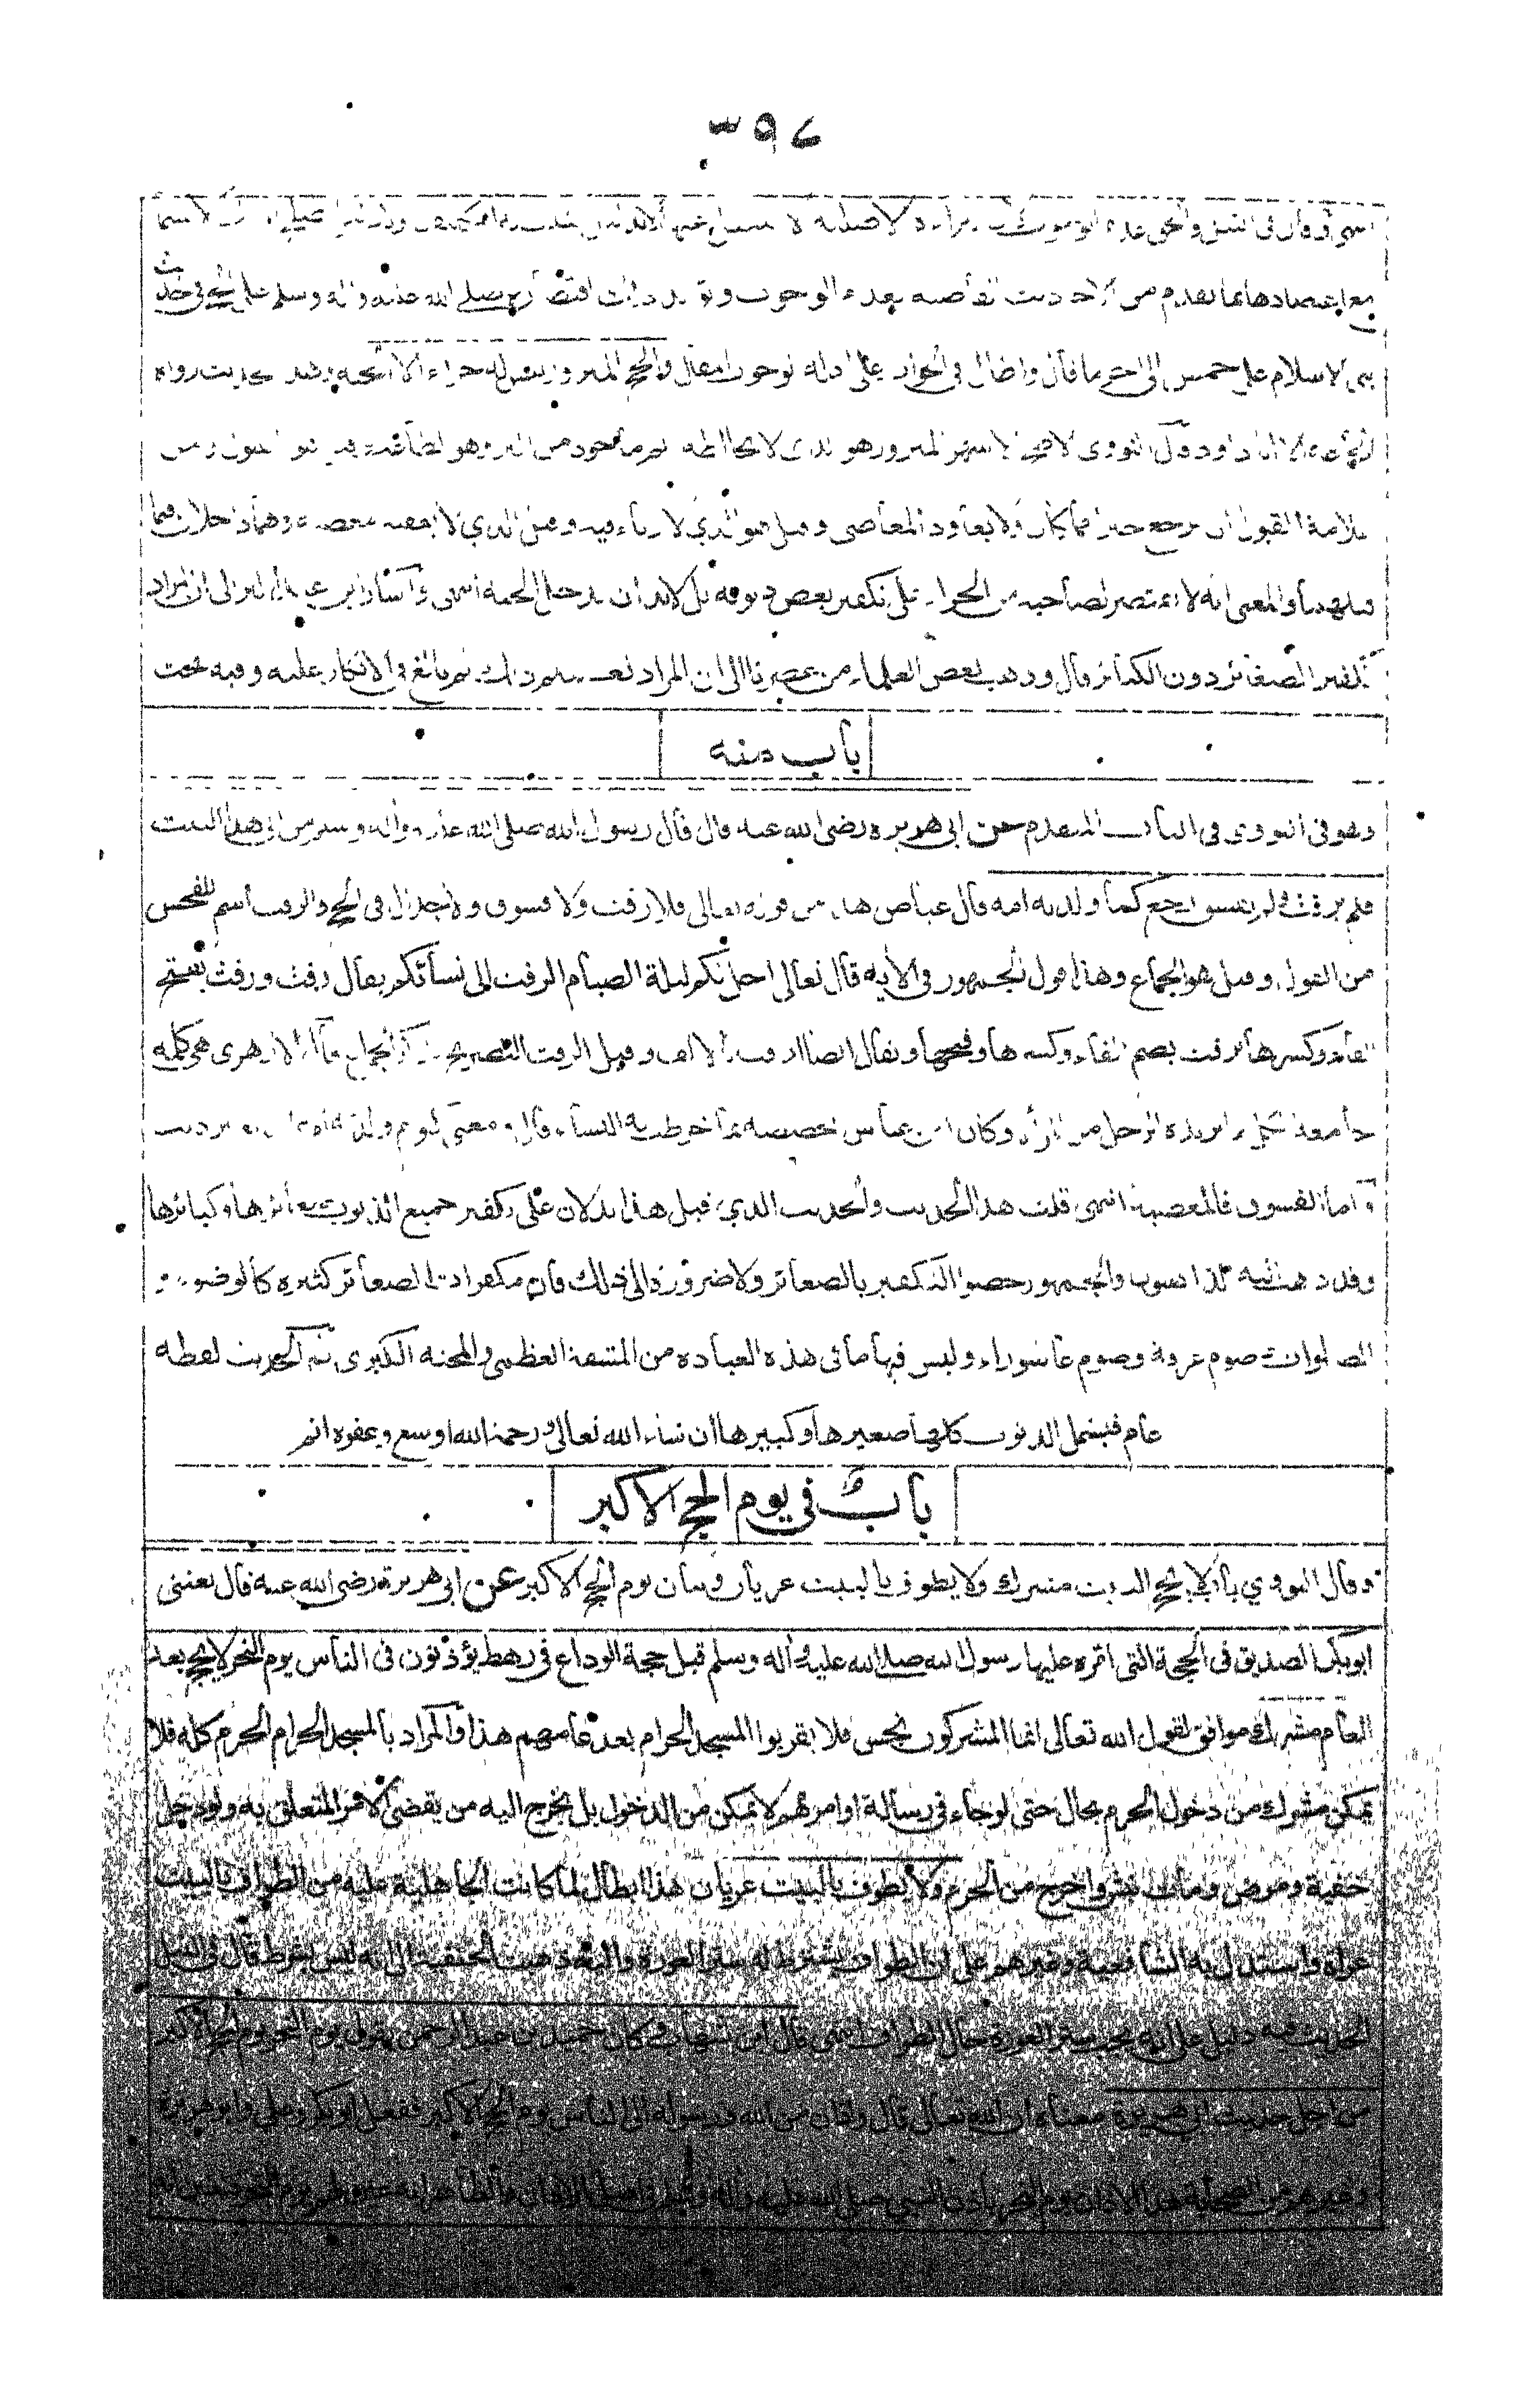 ٣٩٤
مع اعتضادها بما تقدم من الاحاديث القاضية بعدم الوجوب اقتصاره صلى الله عليه وآله وسلم على الحج في حديث
بنى الاسلام على خمس الى اخر ما قال واطال في الجواب على ادلة الوجوب والحج المبرور ليس له جزاء الا الجنة حديث رواه
قال النووي الاصح الاشهر المبرور هو الذي لا يخالطه اثم مأخوذ من البر وهو الطاعة وقيل هو المقبول ومن
علامة القبول ان يرجع خيرا مما كان ولا يعاود المعاصي وقيل هو الذي لا رياء فيه وقيل الذي لا يعقبه معصية وهما داخلان فيما
قبلهما والمعنى انه لا يقتصر لصاحبه من الجزاء على تكفير بعض ذنوبه بل لابد ان يدخل الجنة انتهى واشار ابن عبد البر الى ان المراد
تكفير الصغائر دون الكبائر قال وذهب بعض العلماء من عصرنا الى ان المراد تعميم ذلك ثم بالغ في الانكار عليه وفيه بحث
باب منه
وهو في النووي في الباب المتقدم عن ابي هريرة رضي الله عنه قال قال رسول الله صلى الله عليه وآله وسلم من اتى هذا البيت
فلم يرفث ولم يفسق رجع كما ولدته امه قال عياض هذا من قوله تعالى فلا رفث ولا فسوق ولا جدال في الحج والرفث اسم للفحش
من القول وقيل هو الجماع وهذا قول الجمهور في الآية قال تعالى احل لكم ليلة الصيام الرفث الى نسائكم يقال رفث ورفث بفتح
الفاء وكسرها يرفث بضم الفاء وكسرها وفتحها ويقال ايضا ارفث بالالف وقيل الرفث التصريح بذكر الجماع قال الازهري هي كلمة
جامعة لكل ما يريده الرجل من المرأة وكان ابن عباس يخصصه بما خوطب به النساء قال ومعنى كيوم ولدته امه
واما الفسوق فالمعصية انتهى قلت هذا الحديث والحديث الذي قبل هذا يدلان على تكفير جميع الذنوب صغائرها وكبائرها
وقد ذهب اليه والجمهور خصوا التكفير بالصغائر ولا ضرورة الى ذلك فان مكفرات الصغائر كثيرة كالوضوء و
الصلوات صوم عرفة وصوم عاشوراء وليس فيها ما في هذه العبادة من المشقة العظمى والمحنة الكبرى ثم الحديث لفظه
عام فيشمل الذنوب كلها صغيرها وكبيرها ان شاء الله تعالى ورحمة الله اوسع وعفوه اتم
باب في يوم الحج الاكبر
وقال النووي باب لا يحج البيت مشرك ولا يطوف بالبيت عريان وبيان يوم الحج الاكبر عن ابي هريرة رضي الله عنه قال بعثني
ابو بكر الصديق في الحجة التي امره عليها رسول الله صلى الله عليه وآله وسلم قبل حجة الوداع في رهط يؤذنون في الناس يوم النحر لا يحج بعد
العام مشرك موافق لقول الله تعالى انما المشركون نجس فلا يقربوا المسجد الحرام بعد عامهم هذا والمراد بالمسجد الحرام الحرم كله فلا
يمكن مشرك من دخول الحرم بحال حتى لو جاء في رسالة او امر مهم لا يمكن من الدخول بل يخرج اليه من يقضي الامر المتعلق به ولو دخل
خفية ومرض ومات نبش واخرج من الحرم ولا يطوف بالبيت عريان هذا ابطال لما كانت الجاهلية عليه من الطواف بالبيت
عراة واستدل به الشافعية وغيرهم على ان الطواف يشترط له ستر العورة وذهبت الحنفية الى انه ليس بشرط قال في النيل
الحديث فيه دليل على انه يجب ستر العورة حال الطواف انتهى قال ابن شهاب وكان حميد بن عبد الرحمن يقول يوم النحر يوم الحج الاكبر
من اجل حديث ابي هريرة معناه ان الله تعالى قال واذان من الله ورسوله الى الناس يوم الحج الاكبر ففعل ابو بكر وعلي وابو هريرة
وغيرهم من الصحابة هذا الاذان يوم النحر باذن النبي صلى الله عليه وآله وسلم